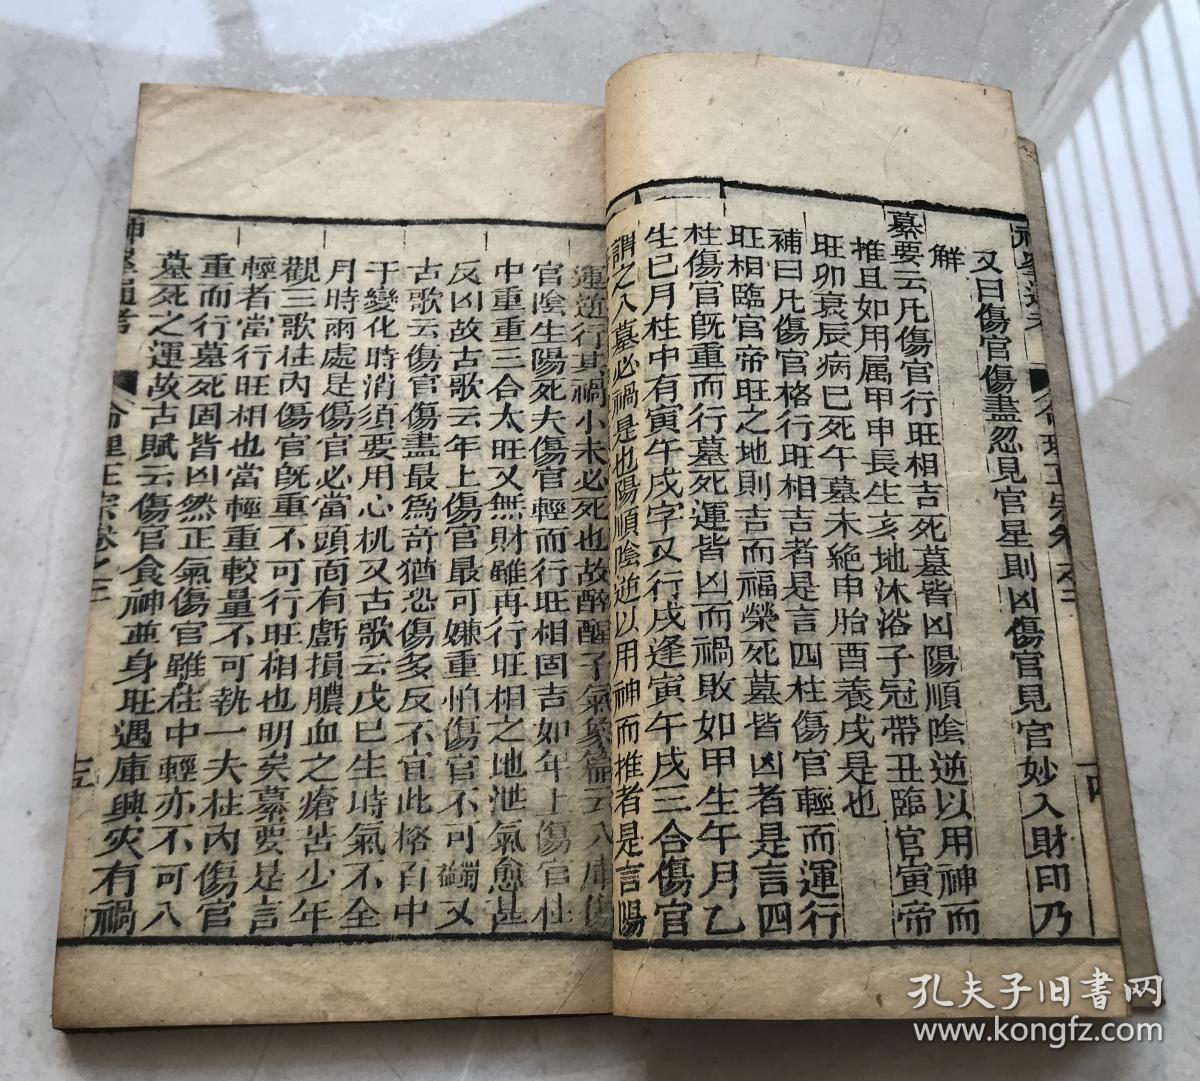 又曰傷官傷盡忽見官星則凶傷官見官妙入財印乃
解
墓要云凡傷官行旺相吉死墓皆凶陽順陰逆以用神而
推且如用属甲申長生亥地沐浴子冠帶丑臨官寅帝
旺卯衰辰病巳死午墓未絶申胎酉養戌是也
補曰凡傷官格行旺相吉者是言四柱傷官輕而運行
旺相臨官帝旺之地則吉而福榮死墓皆凶者是言四
柱傷官旣重而行墓死運皆凶而禍敗如甲生午月乙
生巳月柱中有寅午戌字又行戌逢寅午戌三合傷官
謂之入墓必禍是也陽順陰逆以用神而推者是言陽
運逆行其禍小未必死也故醉醒子氣象篇云入庫傷
官陰生陽死夫傷官輕而行旺相固吉如年上傷官柱
中重重三合太旺又無財雖再行旺相之地泄氣愈甚
反凶故古歌云年上傷官最可嫌重怕傷官不可蠲又
古歌云傷官傷盡最爲竒猶恐傷多反不宜此格百中
千變化時消須要用心机又古歌云戊巳生時氣不全
月時兩處是傷官必當頭靣有虧損膿血之瘡苦少年
觀三歌柱內傷官旣重不可行旺相也明矣墓要是言
輕者當行旺相也當輕重較量不可執一夫柱內傷官
重而行墓死固皆凶然正氣傷官雖柱中輕亦不可入
墓死之運故古賦云傷官食神並身旺遇庫興灾有禍
神峯通考
命理正宗卷之三
十五
神峯通考
命理正宗卷之三
十四
孔夫子旧书网
www.kongfz.com